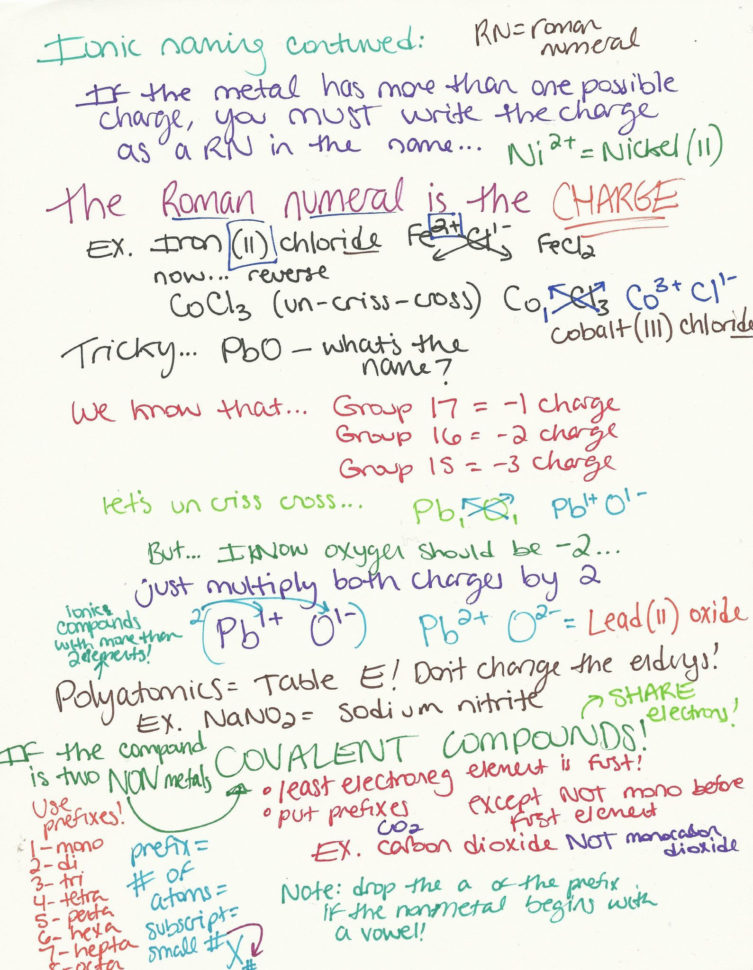 Ionic naming continued:
RN = roman
numeral
If the metal has more than one possible
charge, you must write the charge
as a RN in the name...
Ni²⁺ = Nickel (II)
The Roman numeral is the CHARGE
EX. Iron (II) chloride Fe²⁺ Cl¹⁻ FeCl₂
now... reverse
CoCl₃ (un-criss-cross) Co₁ Cl₃ Co³⁺ Cl¹⁻
cobalt (III) chloride
Tricky... PbO – what's the
name?
We know that... Group 17 = -1 charge
Group 16 = -2 charge
Group 15 = -3 charge
let's un criss cross... Pb₁ O₁ Pb¹⁺ O¹⁻
But... I KNOW oxygen should be -2...
just multiply both charges by 2
ionics
compounds
with more than
2 elements!
2(Pb¹⁺ O¹⁻) Pb²⁺ O²⁻ = Lead (II) oxide
Polyatomics = Table E! Don't change the endings!
EX. NaNO₂ = sodium nitrite
SHARE
electrons!
If the compound
is two NON metals
COVALENT COMPOUNDS!
• least electroneg element is first!
• put prefixes except NOT mono before
first element
CO₂
EX. carbon dioxide NOT monocarbon
dioxide
Use
prefixes!
1 - mono
2 - di
3 - tri
4 - tetra
5 - penta
6 - hexa
7 - hepta
8 - octa
prefix =
# of
atoms =
subscript =
small #
X #
Note: drop the a of the prefix
if the nonmetal begins with
a vowel!